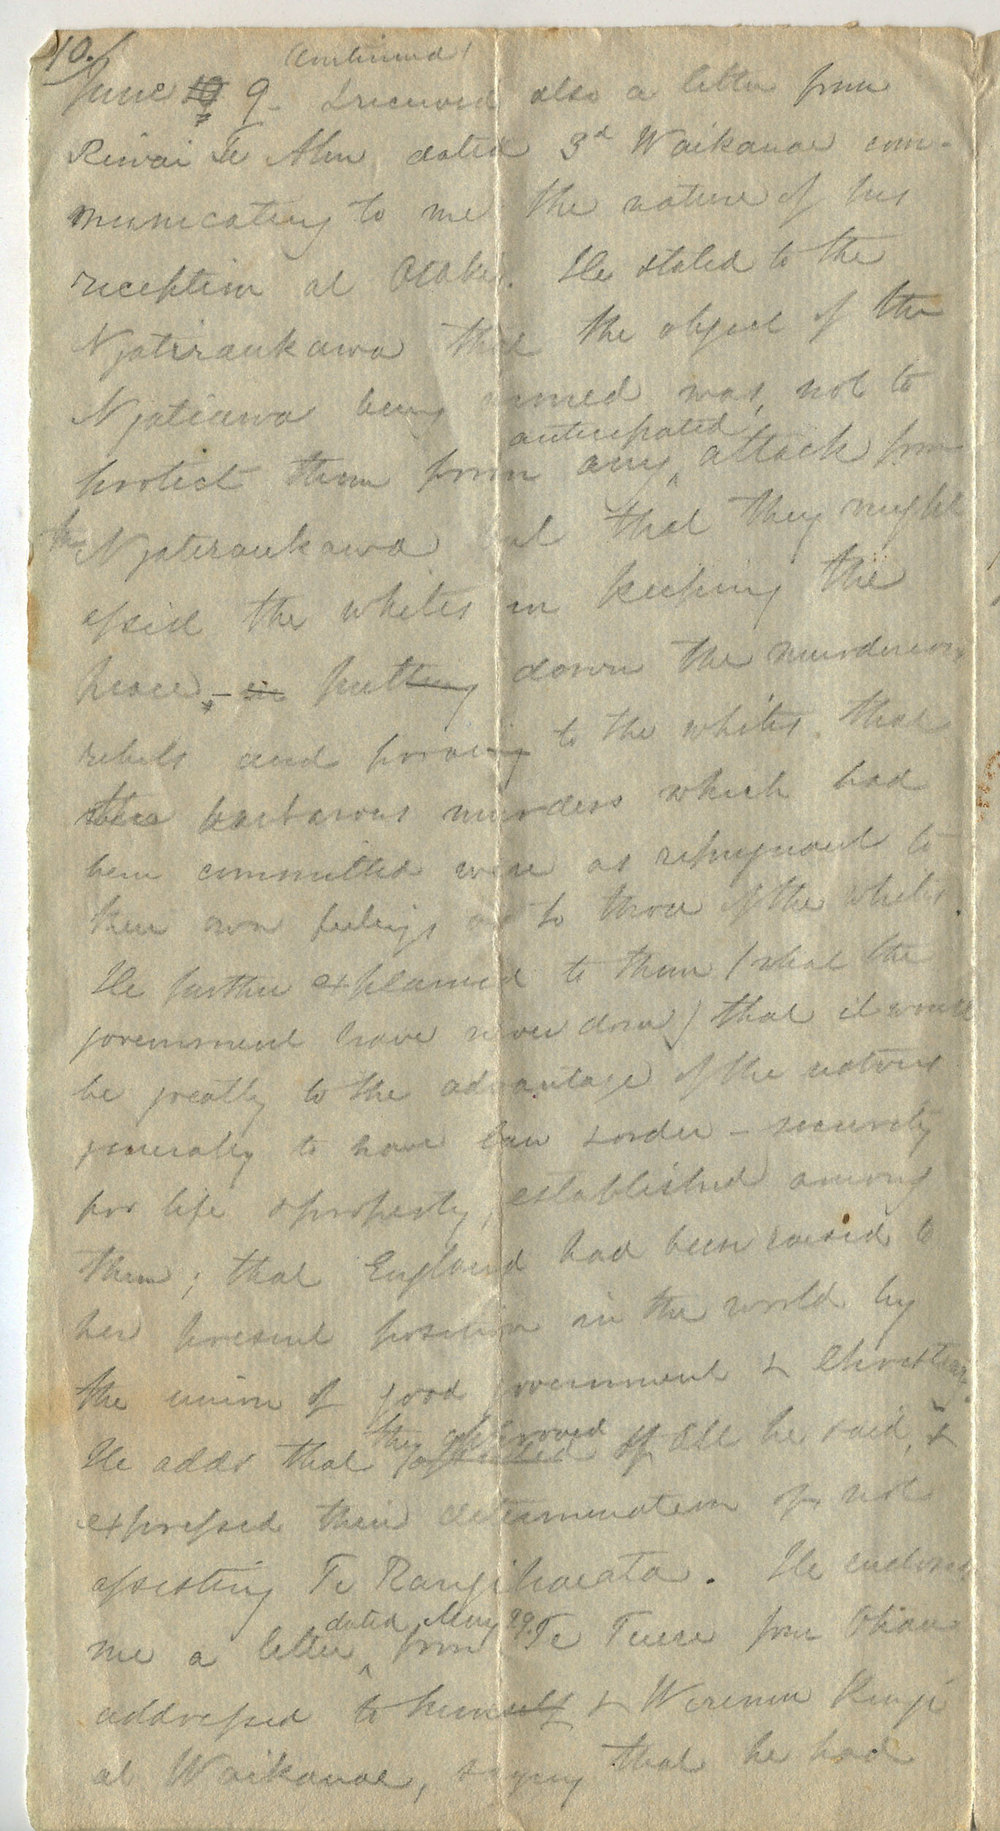 10.
(continued)
June 9. I received also a letter from
Riwai Te Ahu dated 3d Waikanae com-
municating to me the nature of his
reception at Otaki. He stated to the
Ngatiraukawa that the object of the
Ngatiawa being armed was not to
anticipated
protect them from any attack from
the Ngatiraukawa but that they might
assist the whites in keeping the
peace, - in putting down the murderous
rebels and proving to the whites that
the barbarous murders which had
been committed were as repugnant to
their own feelings as to those of the whites.
He further explained to them (what the
government have never done) that it would
be greatly to the advantage of the natives
generally to have law & order - security
for life & property, established among
them; that England had been raised to
her present position in the world by
the union of good government &
they approved
He adds that of all he said, &
expressed their determination of not
assisting Te Rangihaeata. He enclosed
dated May 29.
me a letter from Te from
addressed to himself & Wiremu Kingi
at Waikanae, saying that he had